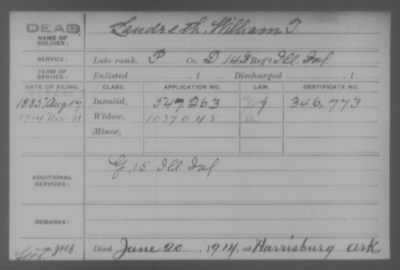 DEAD
NAME OF SOLDIER: Landreth, William T.
SERVICE: Late rank, P Co. D 143 Reg't Ill Inf
TERM OF SERVICE: Enlisted , 1 Discharged , 1
DATE OF FILING. CLASS. APPLICATION NO. LAW. CERTIFICATE NO.
1885 Aug 17 Invalid, 547,263 346,773
1914 Nov 11 Widow, 1037045
Minor,
ADDITIONAL SERVICES: G, 15 Ill Inf
REMARKS:
Died June 20, 1914, at Harrisburg Ark